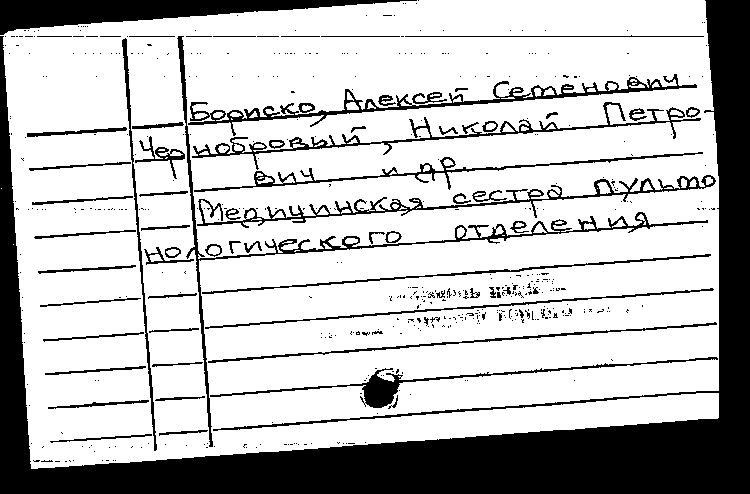 Бориско, Алексей Семёнович
Чернобровый, Николай Петро-
вич и др.
Медицинская сестра пульмо
нологического отделения